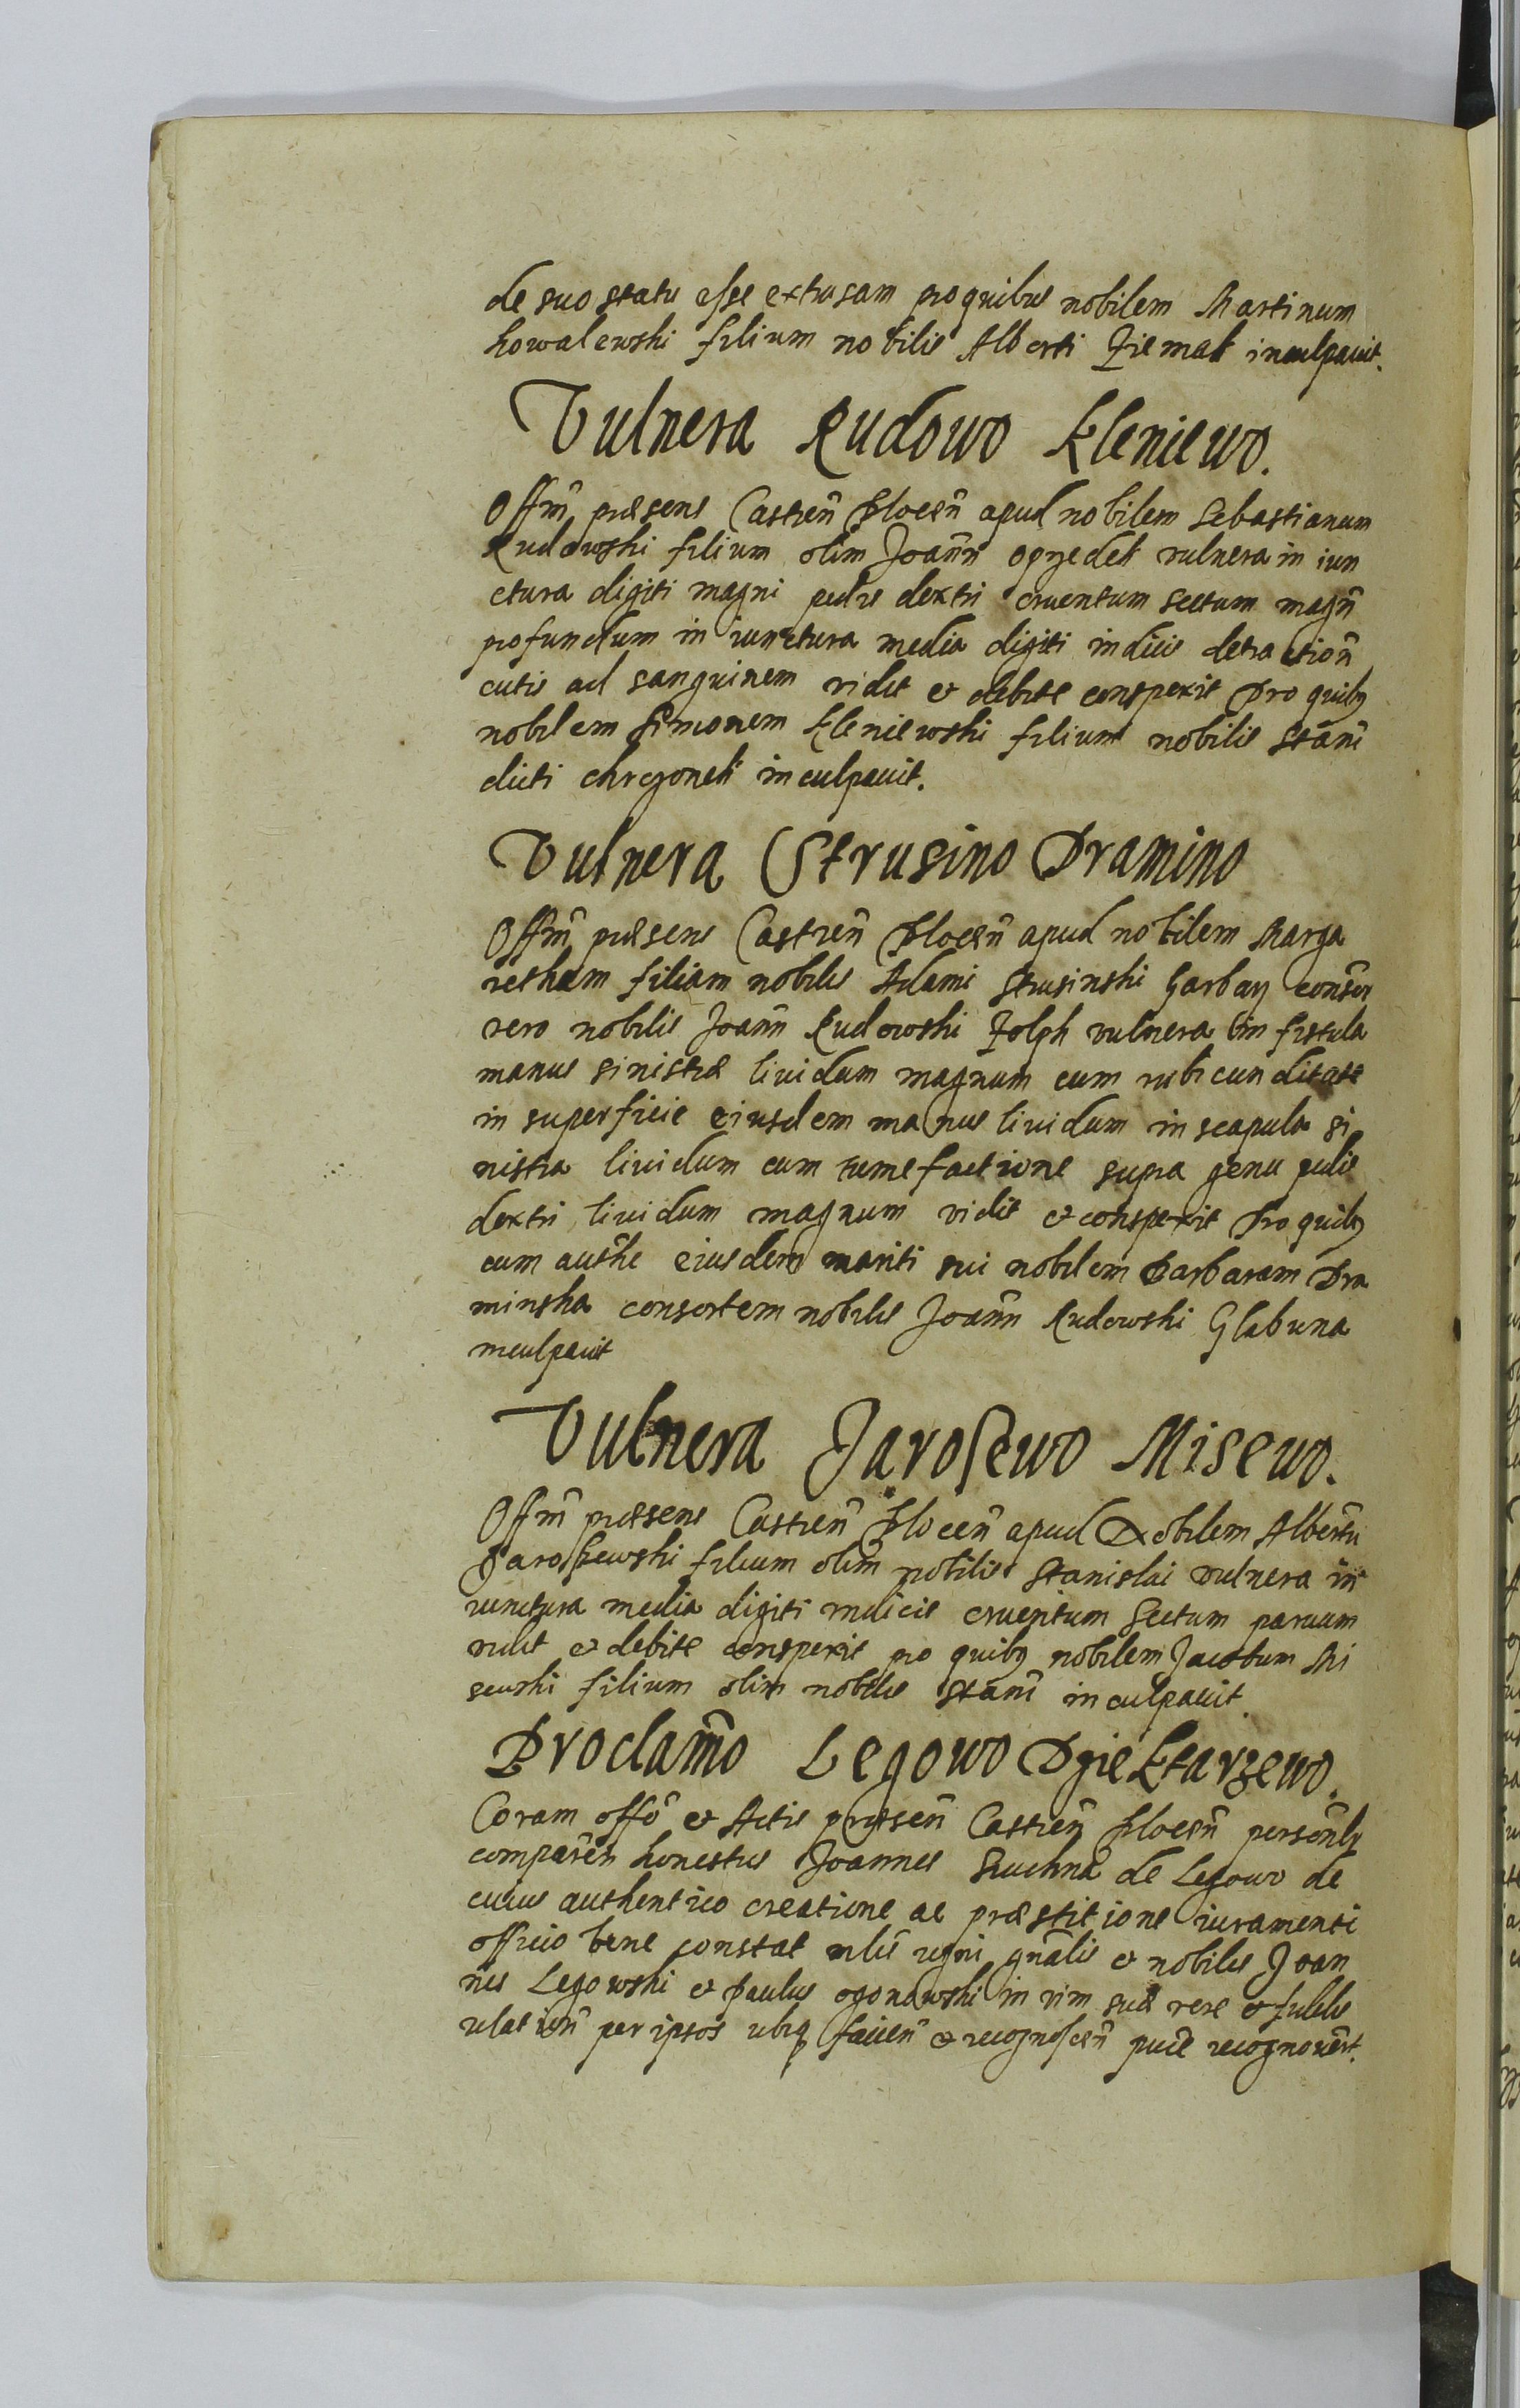 de suo statu esse extrusam pro quibus nobilem Martinum
Kowalewski filium nobilis Alberti Ziemak inculpavit.
Vulnera Rudowo Kleniewo.
Offm̃ præsens Castreñ Ploceñ apud nobilem Sebastianum
Rudowski filium olim Joanñ vulnera in iun
ctura digiti magni pedis dextri cruentum sectum magñ
profundum in iunctura media digiti indicis detractioñ
cutis ad sanguinem vidit et debite conspexit Pro quibq
nobilem Simonem Kleniewski filium nobilis Stañi
dicti inculpavit.
Vulnera Strusino Dramino
Offm̃ præsens Castreñ Ploceñ apud nobilem Marga
retham filiam nobilis Adami Strusinski Garbarz consor̃
vero nobilis Joanñ Rudowski Zolph vulnera in fistula
manus sinistræ lividum magnum cum rubicunditate
in superficie eiusdem manus lividum in scapula si
nistra lividum cum tumefactione supra genu pedis
dextri lividum magnum vidit et conspexit Pro quibq
cum auth̃e eiusdem mariti sui nobilem Barbaram Dra
minska consortem nobilis Joanñ Rudowski Glabuna
inculpavit
Vulnera Jarosewo Misewo.
Offm̃ præsens Castreñ Ploceñ apud Nobilem Albertũ
Jaroszewski filium olim nobilis Stanislai vulnera in
iunctura media digiti indicis cruentum sectum parvum
vidit et debite conspexit pro quibq nobilem Jacobum Mi
sewski filium olim nobilis Stañi inculpavit.
Proclam̃o Legowo Dziektarzewo.
Coram offõ et Actis præseñ Castreñ Ploceñ persoñlr
comparẽn honestus Joannes Suchna de Legowo de
cuius authentico creatione ac præstitione iuramenti
officio bene constat mlis̃ regni gnãlis et nobiles Joan
nes Legowski et Paulus ogonowski in vim suæ veræ et fidelis
relatioñ per ipsos ubiq facieñ et recognosceñ puc̃e recognovẽrt.